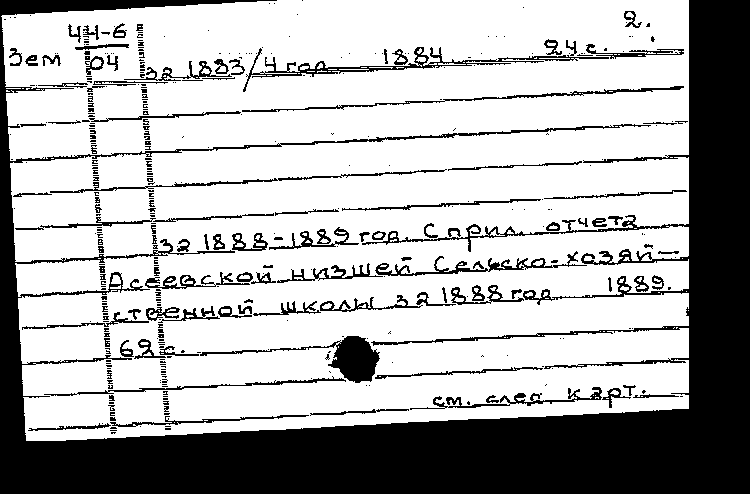 2.
44-6
Зем 04 за 1883/4 год 1884 24 с.
за 1888-1889 год. С прил. отчета
Асеевской низшей Сельско-хозяй-
ственной школы за 1888 год 1889.
62 с.
см. след. карт.